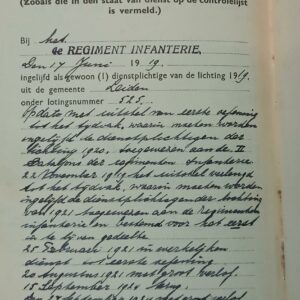 (Zooals die in den staat van dienst op de controlelijst
is vermeld.)
Bij het
4e REGIMENT INFANTERIE,
den 17 Juni 1919.
ingelijfd als gewoon (1) dienstplichtige van de lichting 1919.
uit de gemeente Leiden
onder lotingsnummer 525.
Op dato met uitstel van eerste oefening
tot het tijdvak, waarin moeten worden
ingelijfd de dienstplichtigen der
lichting 1920, toegewezen aan de II
Bataljons der regimenten Infanterie
22 November 1919 het uitstel verlengd
tot het tijdvak, waarin moeten worden
ingelijfd de dienstplichtigen der lichting
van 1921 toegewezen aan de Regimenten
infanterie en bestemd voor het eerst
in te lijven gedeelte
25 Februari 1921 in werkelijken
dienst tot eerste oefening
20 Augustus 1921 met groot verlof.
15 September 1924 terug.